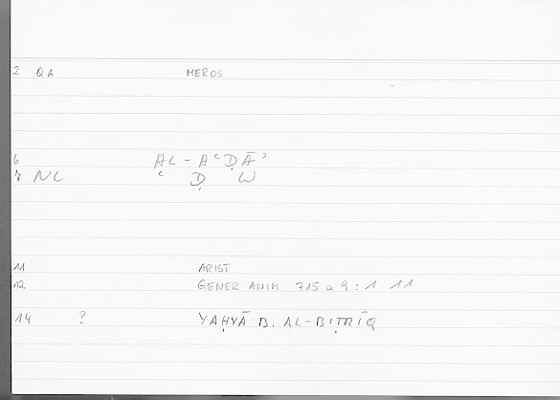 2 QA MEROS
6 AL-AʿḌĀʾ
7 NL ʿ Ḍ W
11 ARIST
12 GENER ANIM 715 a 9 : 1 11
14 ? YAḤYĀ B. AL-BIṬRĪQ